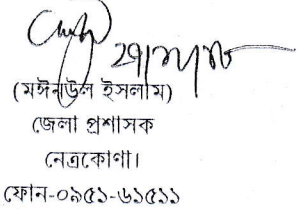 (মঈনউল ইসলাম)
জেলা প্রশাসক
নেত্রকোণা।
ফোন-০৯৫১-৬১৫১১